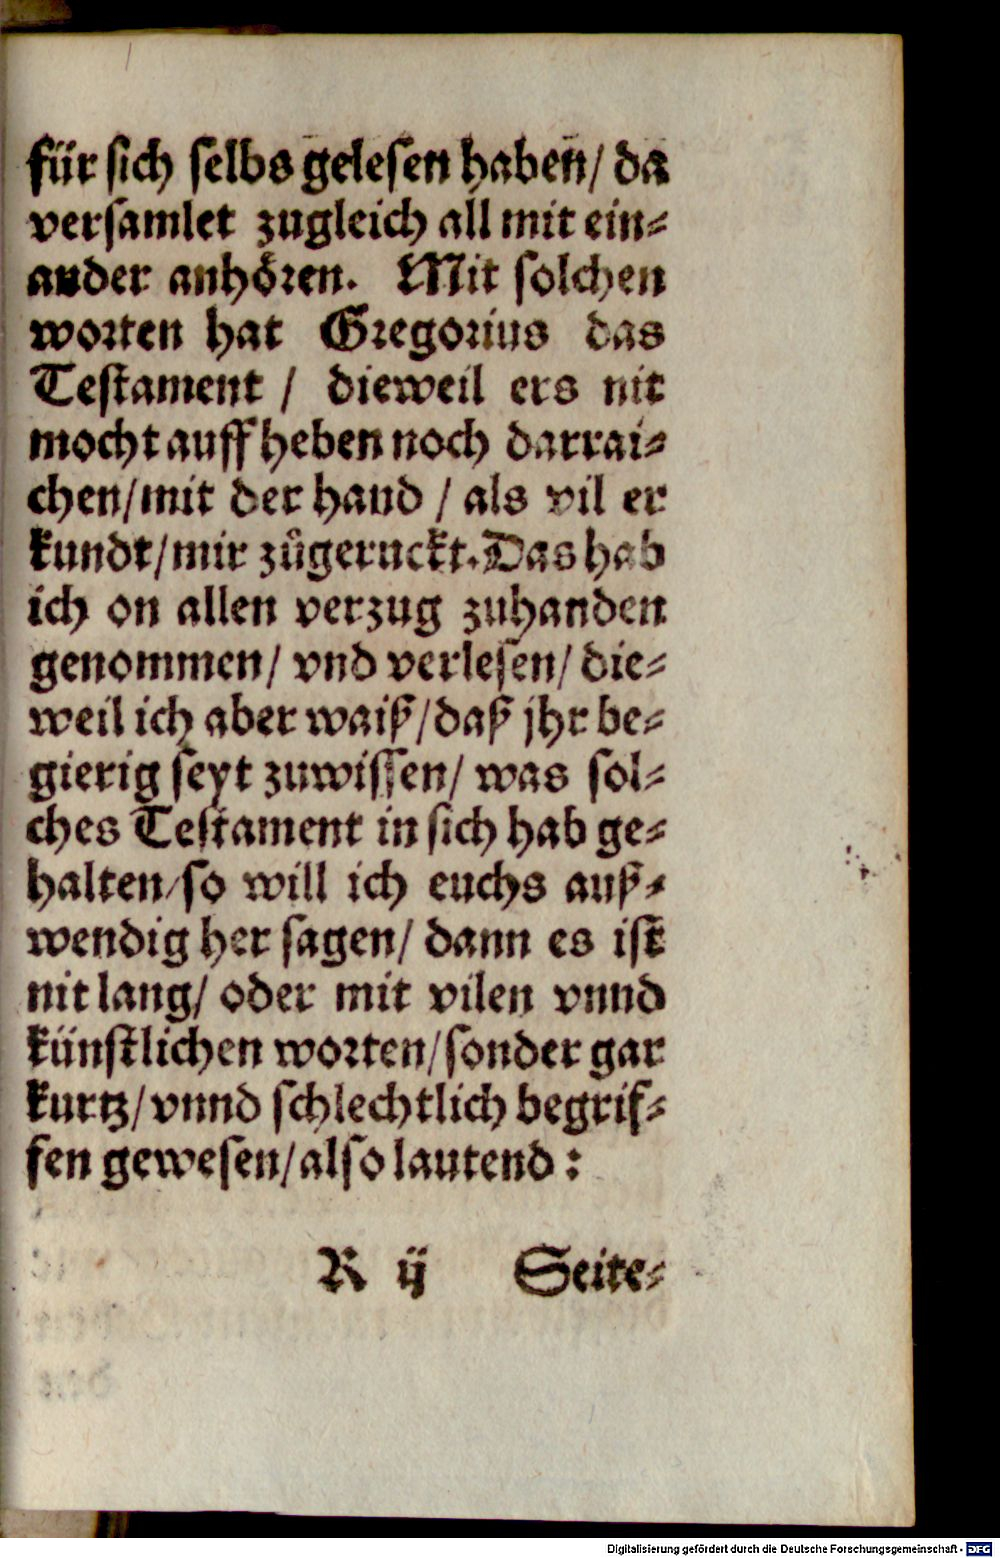 für sich selbs gelesen habeñ/ da
versamlet zugleich all mit ein⸗
ander anhören. Mit solchen
worten hat Gregorius das
Testament / dieweil ers nit
mocht auff heben noch darrai⸗
chen/mit der hand / als vil er
kundt/mir zůgeruckt. Das hab
ich on allen verzug zuhanden
genommen/ vnd verlesen/ die⸗
weil ich aber waiß/daß jhr be⸗
gierig seyt zuwissen/ was sol⸗
ches Testament in sich hab ge⸗
halten/so will ich euchs auß⸗
wendig her sagen/ dann es ist
nit lang/ oder mit vilen vnnd
künstlichen worten/sonder gar
kurtz/vnnd schlechtlich begrif⸗
fen gewesen/also lautend:
R ij Seite⸗
Digitalisierung gefördert durch die Deutsche Forschungsgemeinschaft - DFG